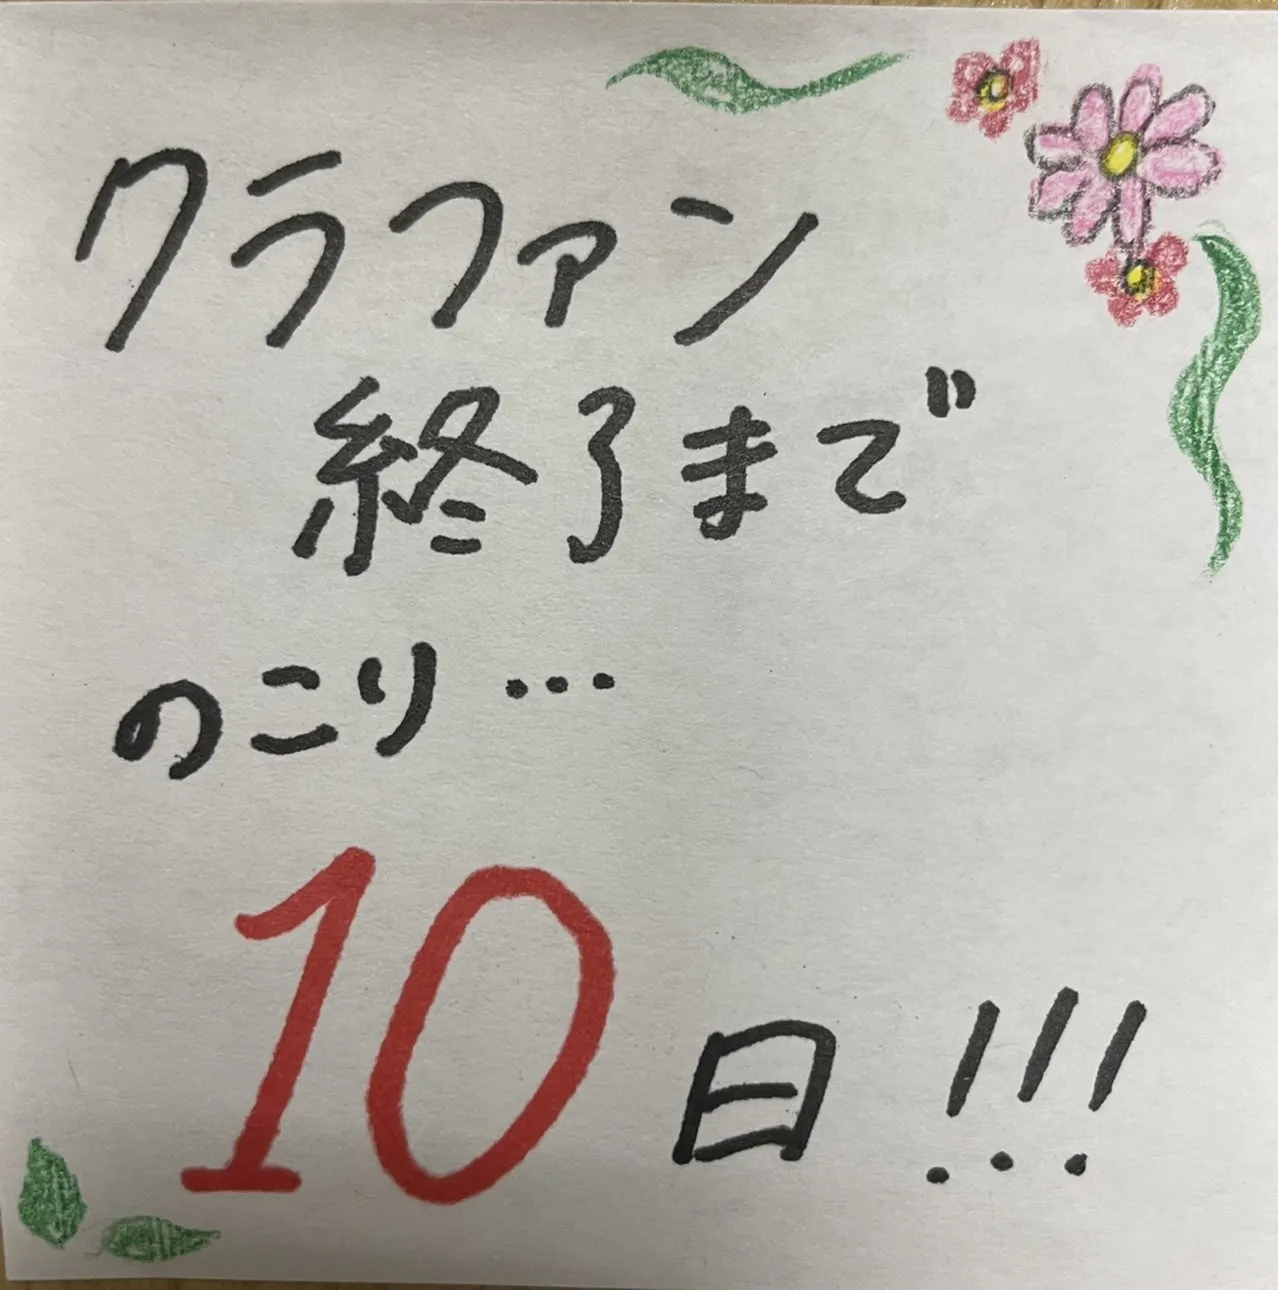 クラファン
終了まで
のこり…
10日!!!